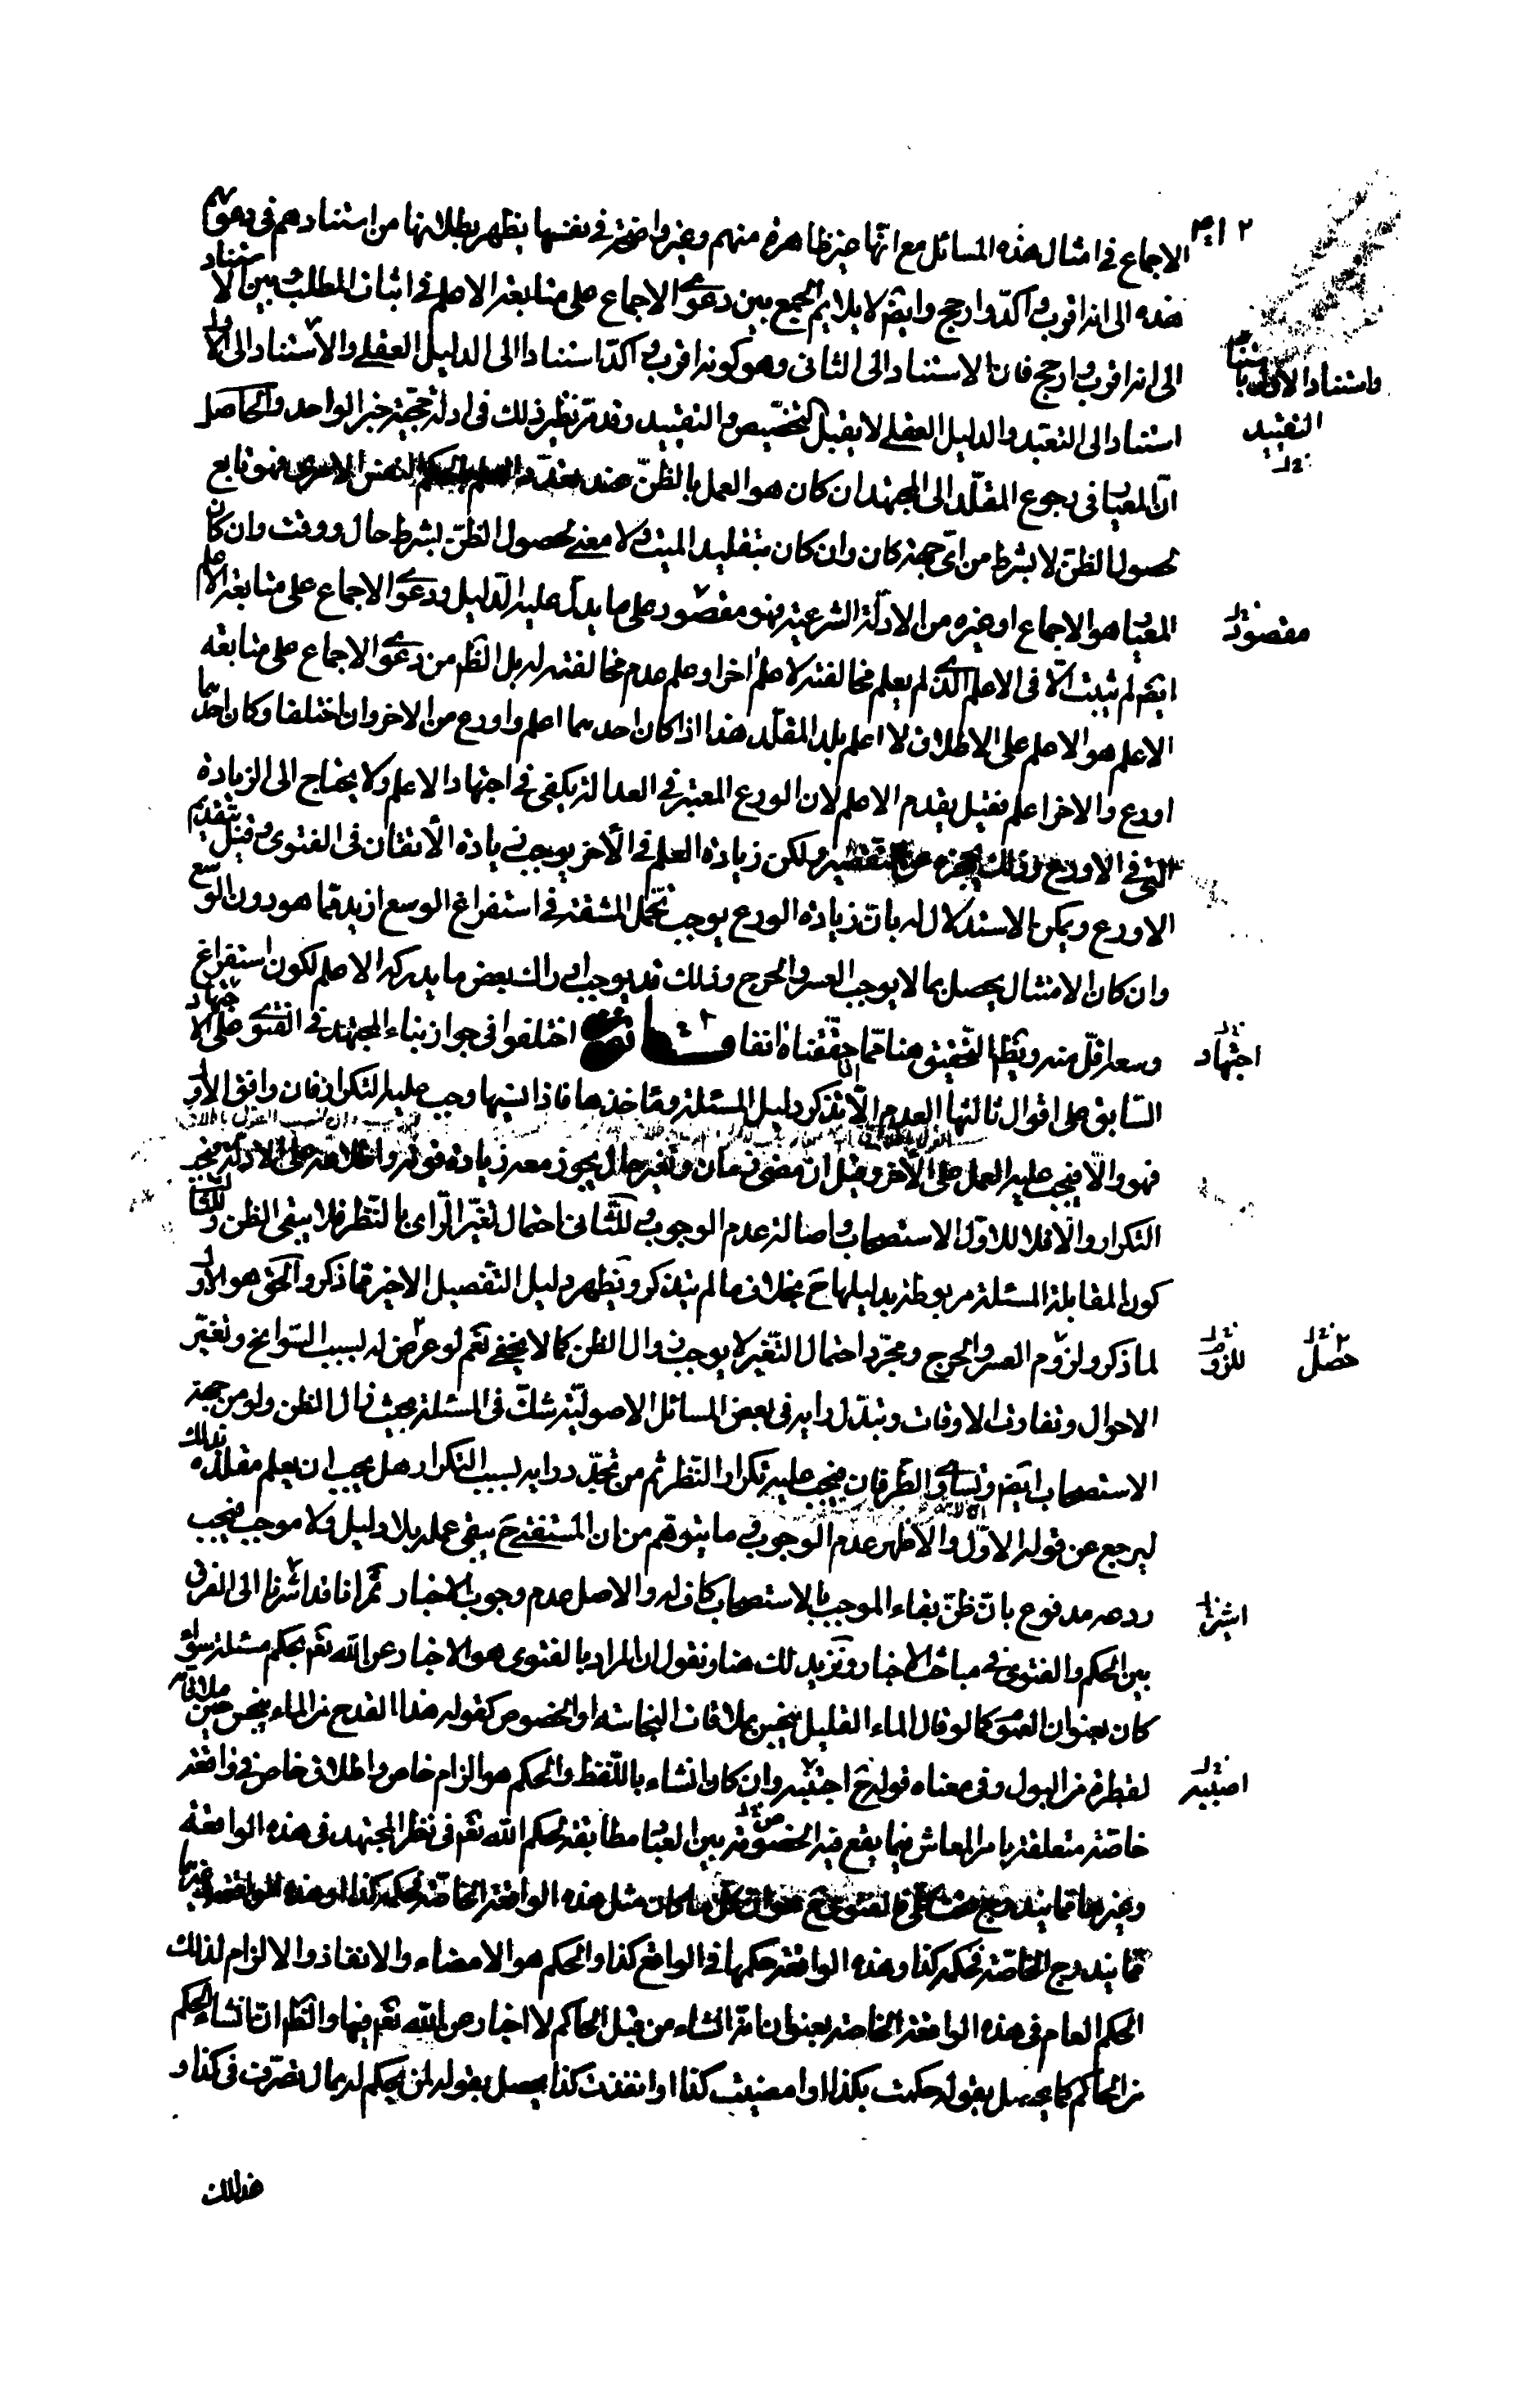 الاجماع فى امثال هذه المسائل مع انّها غير ظاهرة منهم وغير واضحة فى نفسها يظهر بطلانها من استنادهم فى دعويهم
هذه الى انه اقوى وآكد وارجح وايضا لا يلايم الجمع بين دعوى الاجماع على متابعة الاعلم فى اثبات المطلب وبين الاستناد
الى انه اقوى وارجح فان الاستناد الى الثانى وهو كونه اقوى وآكد استناد الى الدليل العقلى والاستناد الى الاول
استناد الى التعبد والدليل العقلى لا يقبل التخصيص والتقييد وقد مرّ نظير ذلك فى ادلة حجية خبر الواحد والحاصل
انّ المعيار فى رجوع المقلّد الى المجتهد ان كان هو العمل بالظنّ عند تعذّر العلم بالحكم النفس الامرى فهو تابع
لحصول الظنّ لا بشرط من اىّ جهة كان وان كان بتقليد الميت ولا معنى لحصول الظنّ بشرط حال ووقت وان كان
المعيار هو الاجماع او غيره من الادلّة الشرعية فهو مقصور على ما يدلّ عليه الدّليل ودعوى الاجماع على متابعة الاعلم
ايضا لم يثبت الّا فى الاعلم الذى لم يعلم مخالفته لاعلم اخر او علم عدم مخالفته له بل الظم من دعوى الاجماع على متابعة
الاعلم هو الاعلم على الاطلاق لا اعلم بلد المقلّد هذا اذا كان احدهما اعلم واورع من الاخر وان اختلفا وكان احدهما
اورع والاخر اعلم فقيل يقدم الاعلم لان الورع المعتبر فى العدالة يكفى فى اجتهاد الاعلم ولا يحتاج الى الزيادة
التى فى الاورع وذلك يحجزه عن التقصير ولكن زيادة العلم فى الاخر يوجب زيادة الاتقان فى الفتوى وقيل بتقديم
الاورع ويمكن الاستدلال له بانّ زيادة الورع يوجب تحمّل المشقة فى استفراغ الوسع ازيد ممّا هو دون الوسع
وان كان الامتثال يحصل بما لا يوجب العسر والحرج وذلك قد يوجب ادراك بعض ما يدركه الاعلم لكون استفراغ
وسعه اقلّ منه ويظهر التحقيق هنا ممّا حقّقناه انفا قانون اختلفوا فى جواز بناء المجتهد فى الفتوى على الاجتهاد
السّابق على اقوال ثالثها العدم الّا اذا تذكر دليل المسئلة ومأخذها فاذا نسيها وجب عليه التكرار فان وافق الاول
فهو والّا فيجب عليه العمل على الاخر وقيل ان مضى زمان وتغير حال يجوز معه زيادة قوته واطلاعه على الادلة فيجب
التكرار والّا فلا للاوّل الاستصحاب واصالة عدم الوجوب وللثانى احتمال تغيّر الرّاى بالنّظر فلا يبقى الظن وللثالث
كون المقابلة المسئلة مربوطة بدليلها ح بخلاف ما لم يتذكر ويظهر دليل التفصيل الاخير ممّا ذكر والحق هو الاول
لما ذكر ولزوم العسر والحرج ومجرّد احتمال التّغير لا يوجب زوال الظن كما لا يخفى نعم لو عرض له بسبب السّوانح وتغيّر
الاحوال وتفاوت الاوقات وتبدّل رايه فى بعض المسائل الاصوليّة شكّ فى المسئلة بحيث زال الظن ولو من جهة
الاستصحاب ايضا وتساوى الطّرفان فيجب عليه تكرار النّظر ثم من تجدّد رايه بسبب التكرار هل يجب ان يعلم مقلّده بذلك
ليرجع عن قوله الاوّل والاظهر عدم الوجوب وما يتوهّم من ان المستفتى ح يبقى عمله بلا دليل ولا موجب فيجب
ردعه مدفوع بانّ ظنّ بقاء الموجب بالاستصحاب كاف له والاصل عدم وجوب الاخبار ثمّ انا قد اشرنا الى الفرق
بين الحكم والفتوى فى مباحث الاخبار ونزيد لك هنا ونقول ان المراد بالفتوى هو الاخبار عن الله تعم بحكم مسئلة سواء
كان بعنوان العموم كما لو قال الماء القليل ينجس بملاقات النجاسة او الخصوص كقوله هذا القدح من الماء ينجس حين ملاقاته
لقطرة من البول وفى معناه قوله ح اجتنبه وان كان انشاء باللّفظ والحكم هو الزام خاص واطلاق خاص فى واقعة
خاصّة متعلقة بامر المعاش فيما يقع فيه الخصومة بين العباد مطابقة لحكم الله تعم فى نظر المجتهد فى هذه الواقعة
وغيرها ممّا يندرج تحت كلّى فالفتوى ح عنوان كل ما كان مثل هذه الواقعة الخاصّة فحكمه كذا او هذه الواقعة وغيرها
ممّا يندرج الخاصّة فحكمه كذا وهذه الواقعة حكمها فى الواقع كذا والحكم هو الامضاء والانفاذ والالزام لذلك
الحكم العام فى هذه الواقعة الخاصة بعنوان انّه انشاء من قبل الحاكم لا اخبار عن الله تعم فيها والظم انّ انشاء الحكم
من الحاكم كما يحصل بقوله حكمت بكذا او امضيت كذا او انفذت كذا يحصل بقوله لمن يحكم له بمال تصرّف فى كذا و
هذا لك
واستناد الاول باستناد
التقييد
مقصود
اجتهاد
للزوم
حصل
اشرنا
اجتنبه